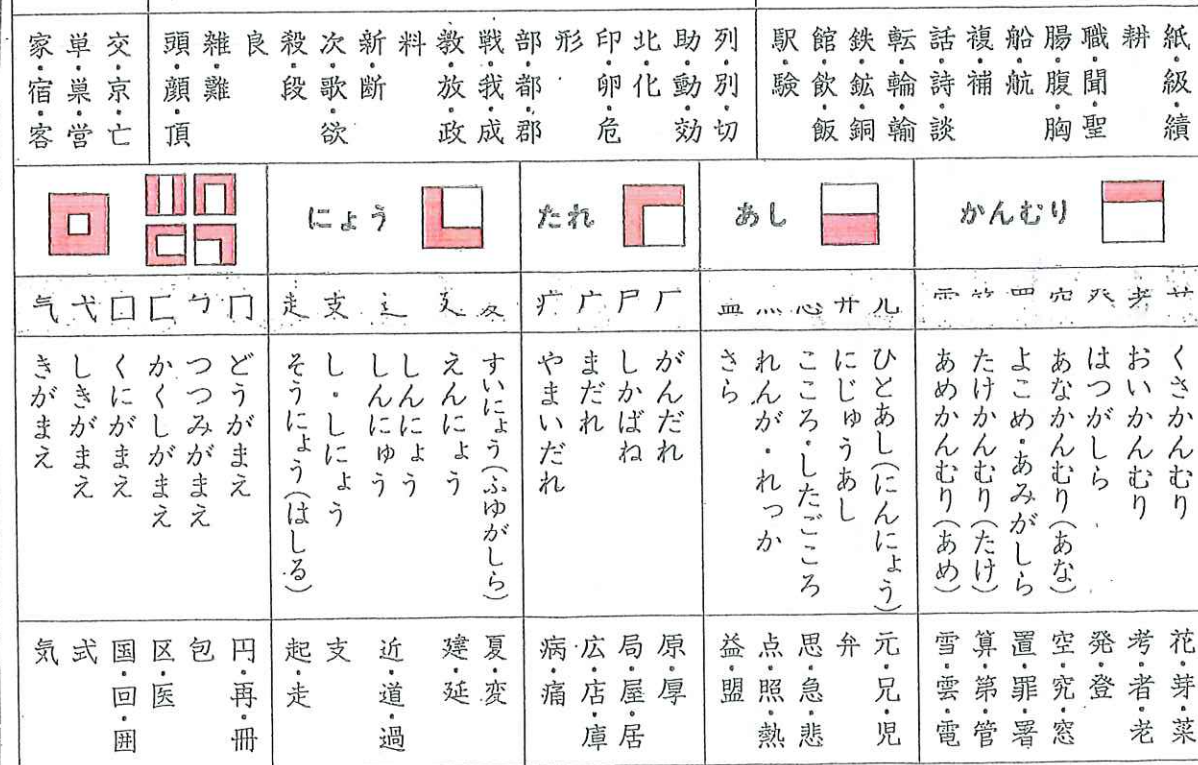 紙・級・績
耕
職・聞・聖
腸・腹・胸
船・航
複・補
話・詩・談
転・輪・輸
鉄・鉱・銅
館・飲・飯
駅・験
列・別・切
助・動・効
北・化
印・卵・危
形
部・都・郡
戦・我・成
教・放・政
料
新・断
次・歌・欲
殺・段
良
雑・難
頭・顔・頂
交・京・亡
単・巣・営
家・宿・客
かんむり
艹
耂
癶
穴
罒
⺮
雨
くさかんむり
おいかんむり
はつがしら
あなかんむり(あな)
よこめ・あみがしら
たけかんむり(たけ)
あめかんむり(あめ)
花・芽・菜
考・者・老
発・登
空・究・窓
置・罪・署
算・第・管
雪・雲・電
あし
儿
廾
心
灬
皿
ひとあし(にんにょう)
にじゅうあし
こころ・したごころ
れんが・れっか
さら
元・兄・児
弁
思・急・悲
点・照・熱
益・盟
たれ
厂
尸
广
疒
がんだれ
しかばね
まだれ
やまいだれ
原・厚
局・屋・居
広・店・庫
病・痛
にょう
夂
廴
辶
支
走
すいにょう(ふゆがしら)
えんにょう
しんにょう
しんにゅう
し・しにょう
そうにょう(はしる)
夏・変
建・延
近・道・過
支
起・走
冂
勹
匚
囗
弋
气
どうがまえ
つつみがまえ
かくしがまえ
くにがまえ
しきがまえ
きがまえ
円・再・冊
包
区・医
国・回・囲
式
気